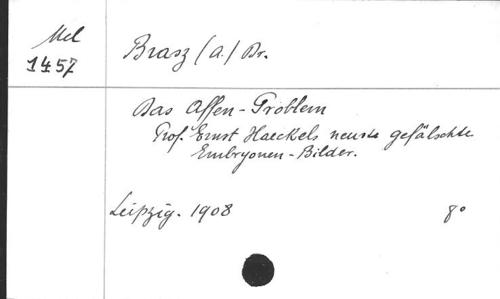 Mel
1457
Brasz (A.) Dr.
Das Affen-Problem
Prof. Ernst Haeckels neuste gefälschte
Embryonen-Bilder.
Leipzig. 1908
8°